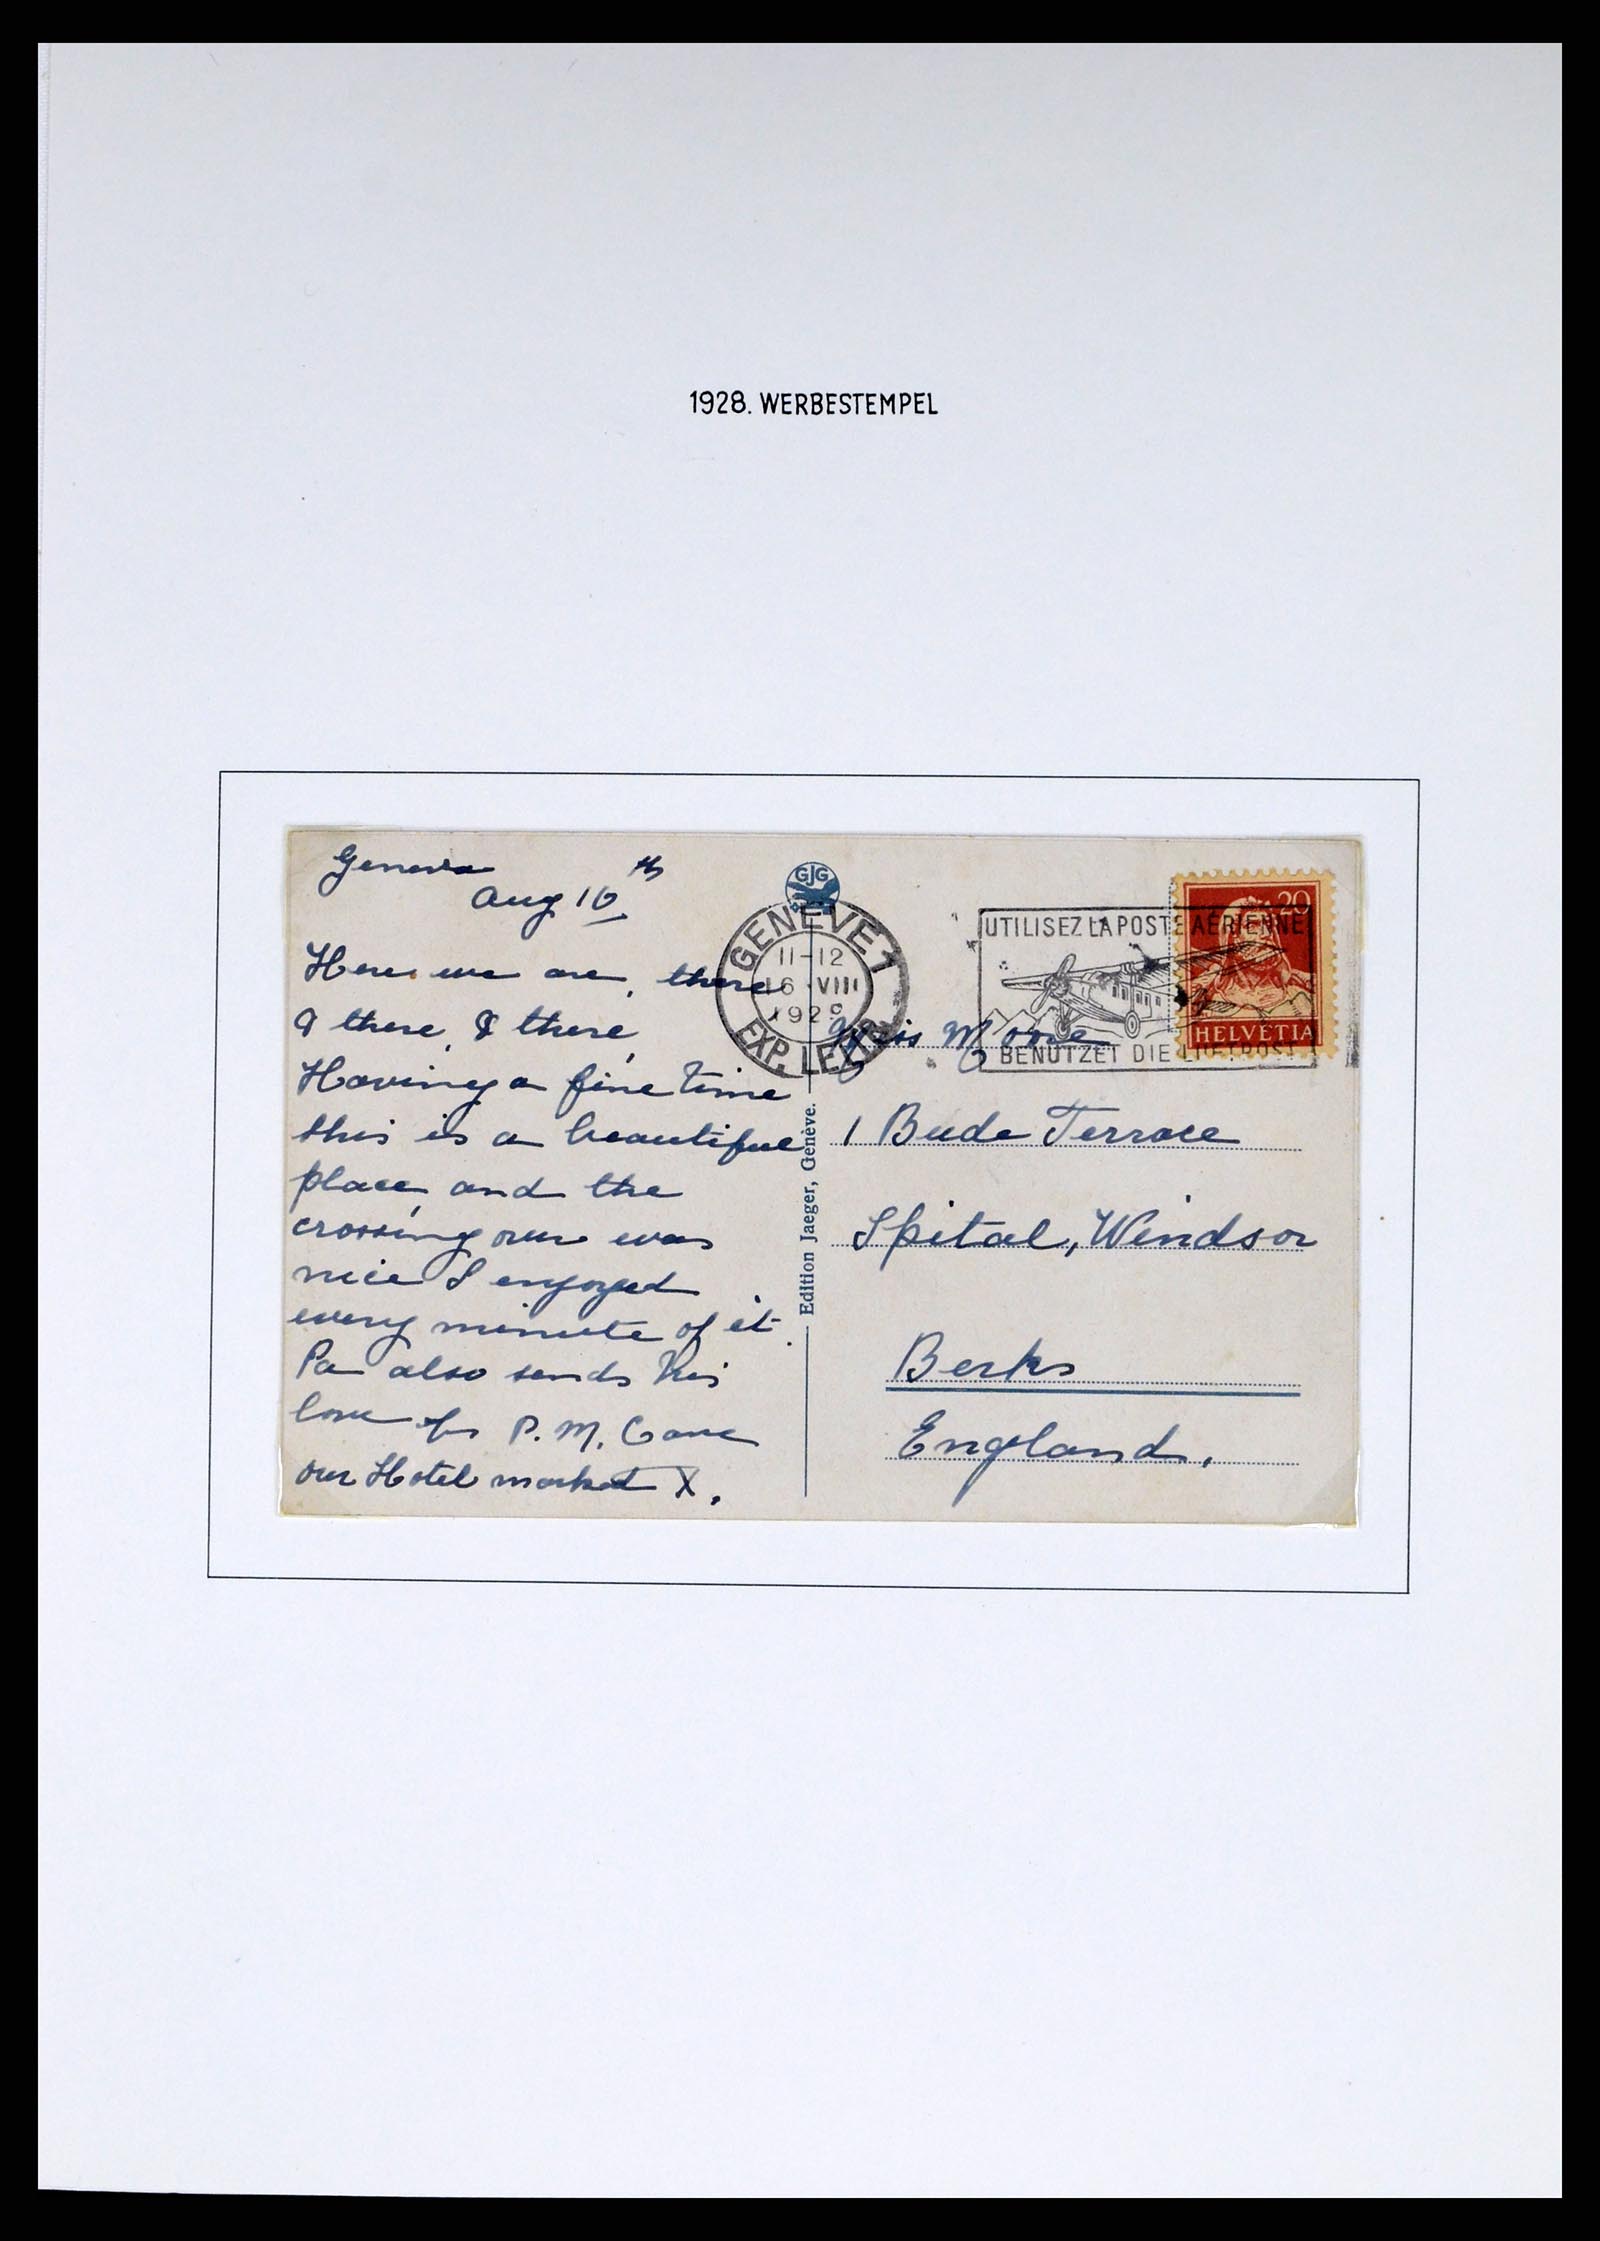 1928. WERBESTEMPEL
Geneva
Aug 16th
Here we are, there
& there, & there,
Having a fine time
this is a beautiful
place and the
crossing over was
nice I enjoyed
every minute of it.
Pa also sends his
love fr P. M. Cave
our Hotel marked X.
GJG
Edition Jaeger, Genève.
GENÈVE 1
11-12
16 VIII
192
EXP. LETTR
UTILISEZ LA POSTE AÉRIENNE
BENUTZET DIE LUFTPOST
20
HELVETIA
Miss Moore
1 Bude Terrace
Spital, Windsor
Berks
England.